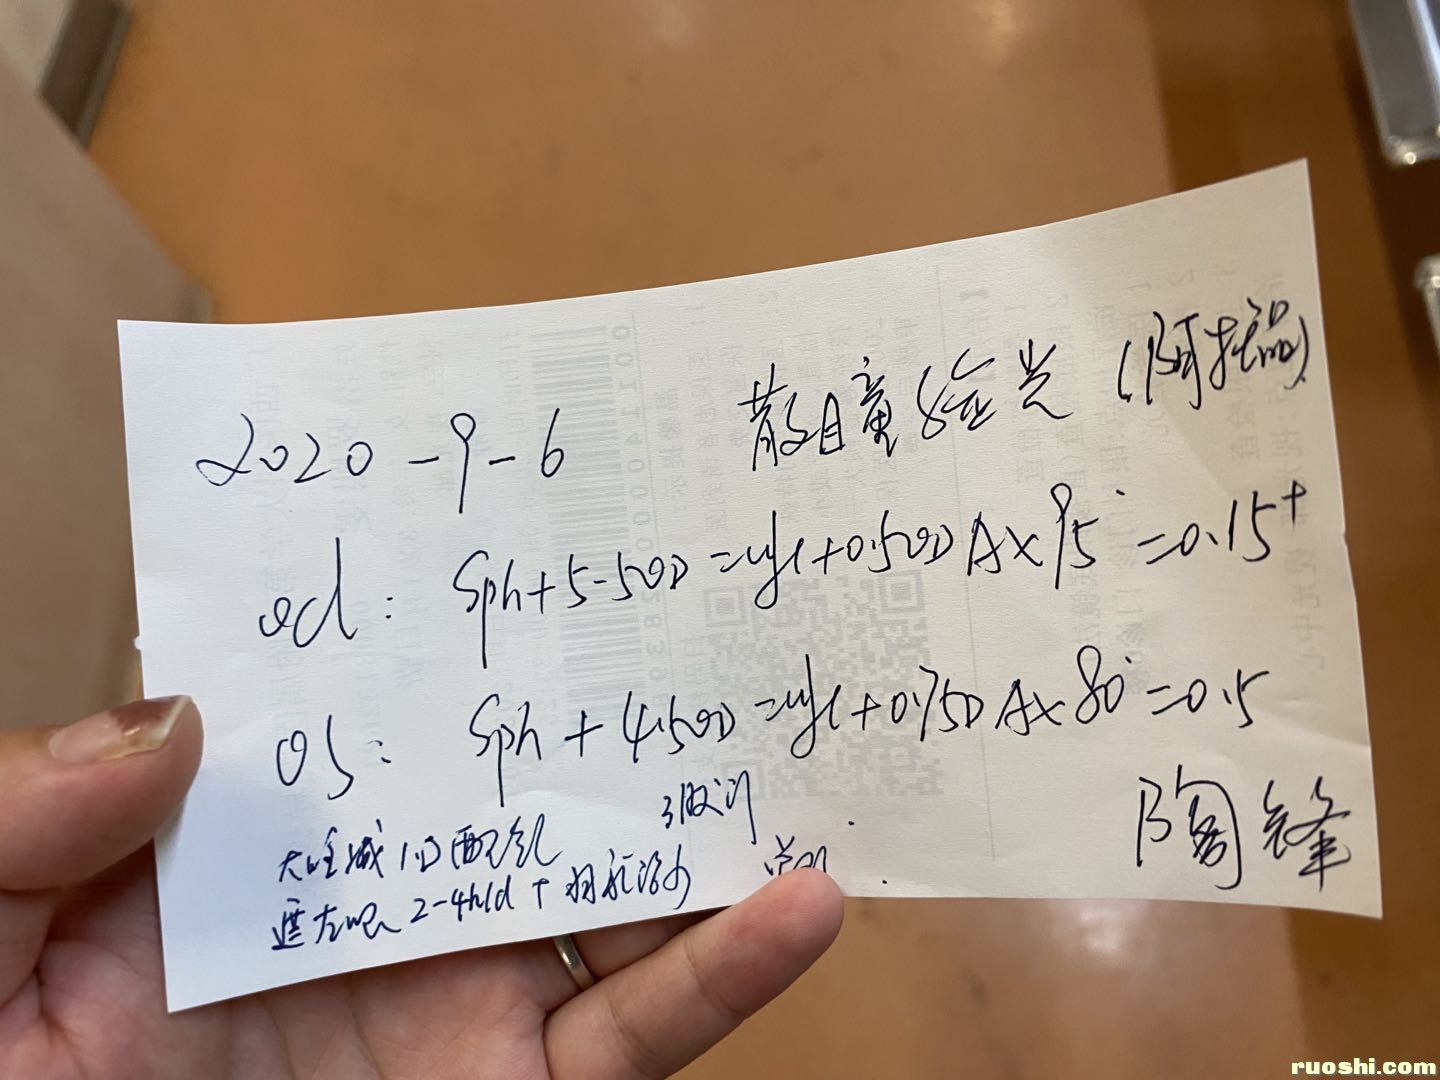 2020-9-6 散瞳验光 (阿托品)
od: Sph+5.50D =cyl+0.50D Ax95° =0.15+
os: Sph+4.50D =cyl+0.75D Ax80° =0.5
大 减1D配镜 3 
遮左眼 2-4h/d +
陶锋
ruoshi.com